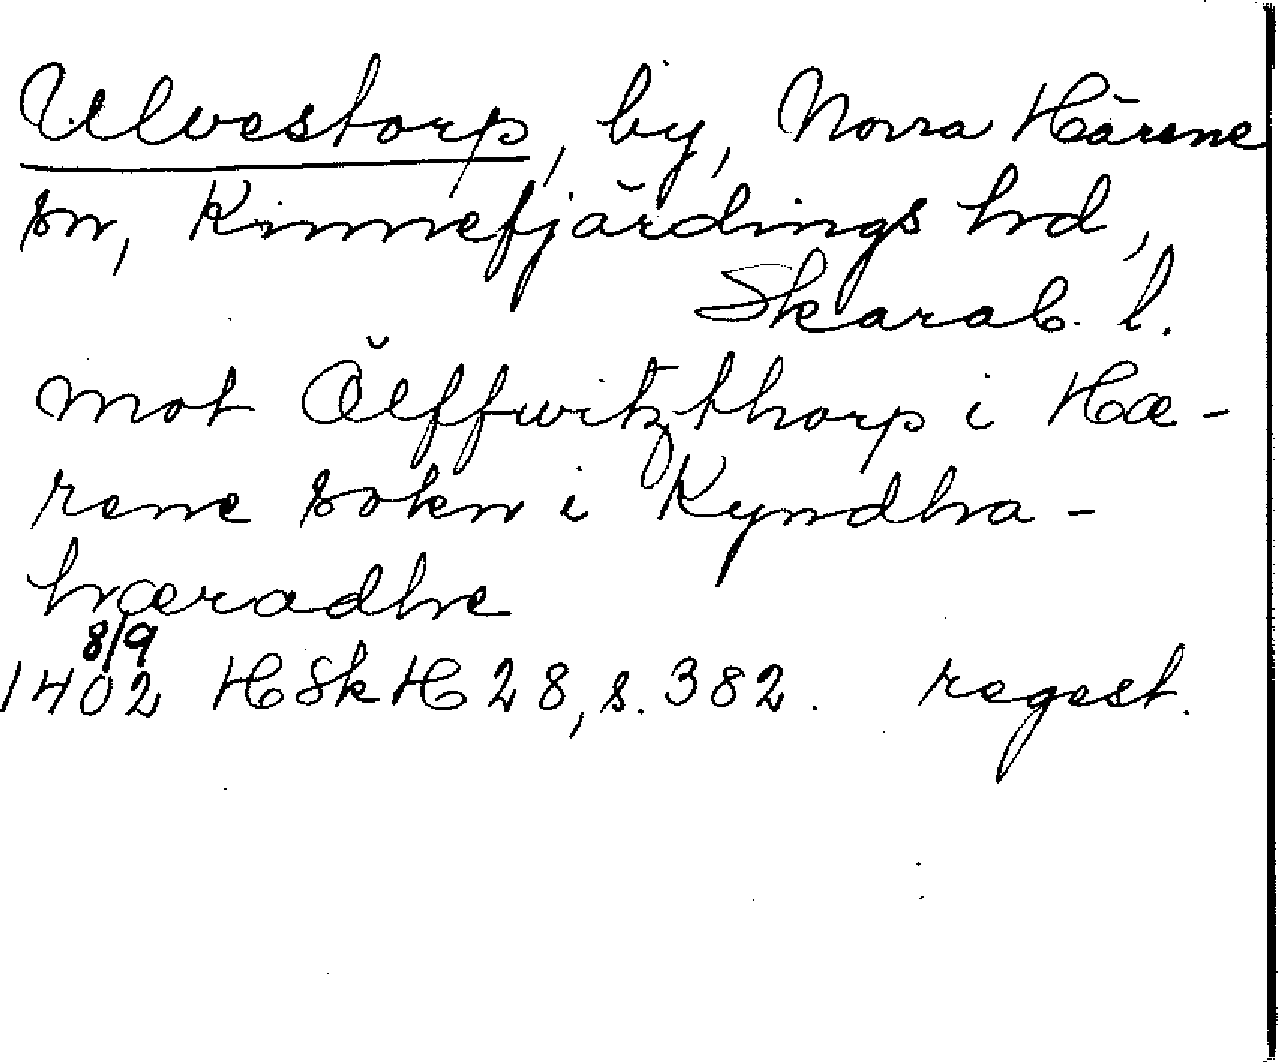 Ulvestorp, by, Norra Härene
sn, Kinnefjärdings hd,
Skarab. l.
mot Ölffwitzthorp i Hæ-
rene sokn i Kyndha-
hæradhe
8/9
1402 HSkH 28, s. 382. regest.